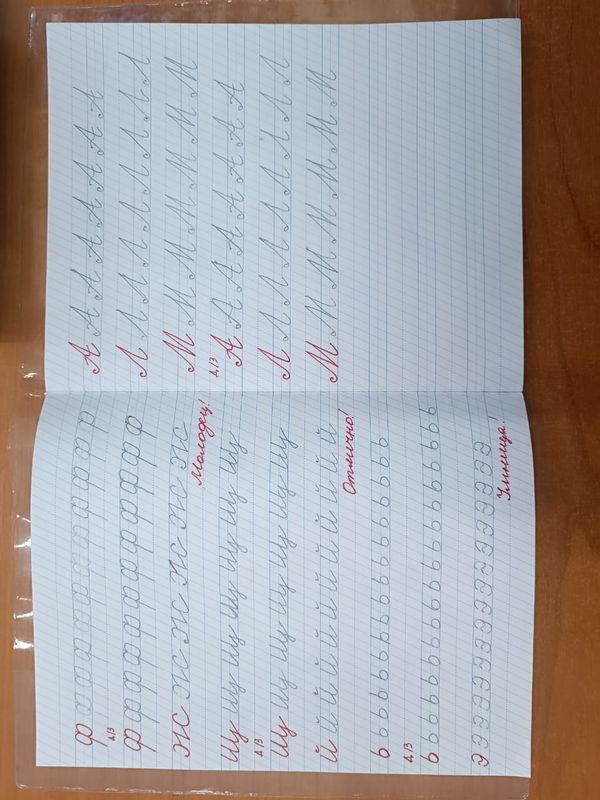 ф ф ф ф ф ф ф ф ф ф ф ф
д/з
ф ф ф ф ф ф ф ф ф ф ф ф
Ж Ж Ж Ж Ж Ж
Молодец!
Щ Щ Щ Щ Щ Щ Щ
д/з
Щ Щ Щ Щ Щ Щ Щ
Й Й Й Й Й Й Й Й Й Й Й
Отлично!
ь ь ь ь ь ь ь ь ь ь ь ь ь ь ь
д/з
ь ь ь ь ь ь ь ь ь ь ь ь ь ь ь ь
Э Э Э Э Э Э Э Э Э Э Э Э Э Э Э
Умница!
А А А А А А А А
Л Л Л Л Л Л Л Л
М М М М М М М
д/з
А А А А А А А А
Л Л Л Л Л Л Л Л
М М М М М М М